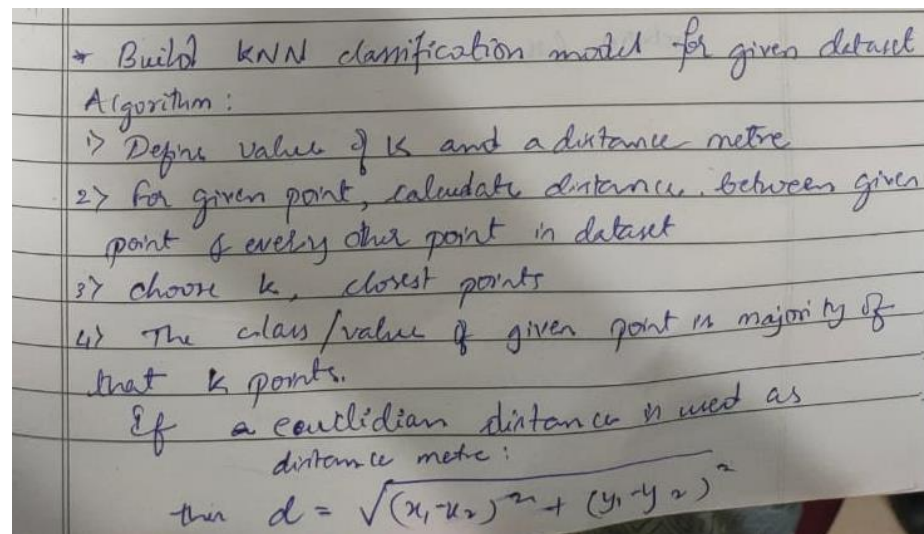 * Build KNN classification model for given dataset
Algorithm :
1> Define value of K and a distance metre
2> for given point, calculate distance between given
point & every other point in dataset
3> choose k, closest points
4> The class/value of given point is majority of
that K points.
If a eculidian distance is used as
distance metre :
then d = √(x₁-x₂)² + (y₁-y₂)²